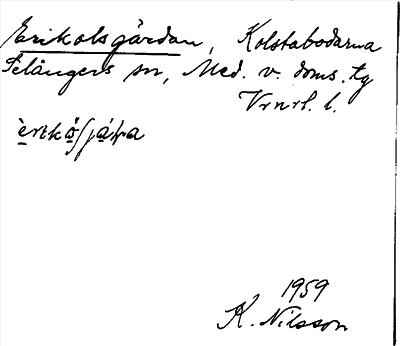 Erikolsgårdan, Kolstabodarna
Selångers sn, Med. v. doms. tg
Vrnrl. l.
1959
K. Nilsson